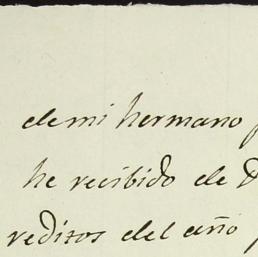 de mi hermano
he recibido de D
reditos del año